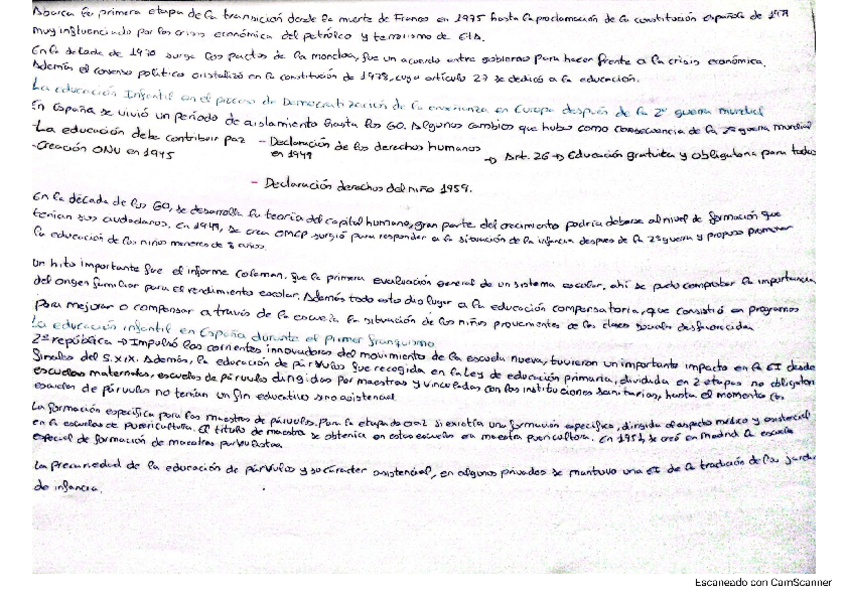 Abarca la primera etapa de la transición desde la muerte de Franco en 1975 hasta la proclamación de la constitución española de 1978
muy influenciado por la crisis económica del petróleo y terrorismo de ETA.
En la década de 1970 surge los pactos de la moncloa, fue un acuerdo entre gobierno para hacer frente a la crisis económica.
Además el consenso político cristalizó en la constitución de 1978, cuyo artículo 27 se dedicó a la educación.
La educación Infantil en el proceso de Democratización de la enseñanza en Europa después de la 2ª guerra mundial
En España se vivió un período de aislamiento hasta los 60. Algunos cambios que hubo como consecuencia de la 2ª guerra mundial
-La educación debe contribuir paz - Declaración de los derechos humanos
-Creación ONU en 1945 en 1949 → Art. 26 → Educación gratuita y obligatoria para todos
- Declaración derechos del niño 1959.
En la década de los 60, se desarrolla la teoría del capital humano, gran parte del crecimiento podría deberse al nivel de formación que
tenían sus ciudadanos. En 1949, se crea OMEP, surgió para responder a la situación de la infancia después de la 2ª guerra y propuso promover
la educación de los niños menores de 8 años.
Un hito importante fue el informe Coleman. fue la primera evaluación general de un sistema escolar. ahí se pudo comprobar la importancia
del origen familiar para el rendimiento escolar. Además todo esto dio lugar a la educación compensatoria, que consistió en programas
para mejorar o compensar a través de la escuela la situación de los niños provenientes de las clases sociales desfavorecidas
La educación infantil en España durante el primer franquismo
2ª república → Impulsó las corrientes innovadoras del movimiento de la escuela nueva, tuvieron un importante impacto en la EI desde
finales del S.XIX. Además, la educación de párvulos fue recogida en la Ley de educación primaria, dividida en 2 etapas no obligatorias
escuelas maternales, escuelas de párvulos dirigidas por maestras y vinculadas con las instituciones sanitarias, hasta el momento las
escuelas de párvulos no tenían un fin educativo sino asistencial
La formación específica para los maestros de párvulos. Para la etapa de 0 a 2 si existía una formación específica, dirigida al aspecto médico y asistencial
en la escuelas de puericultura. El título de maestra se obtenía en estas escuelas era maestra puericultora. En 1951, se creó en Madrid la escuela
especial de formación de maestras parvulistas.
La precariedad de la educación de párvulos y su carácter asistencial, en algunos privados se mantuvo una EI de la tradición de los
de infancia.
Escaneado con CamScanner